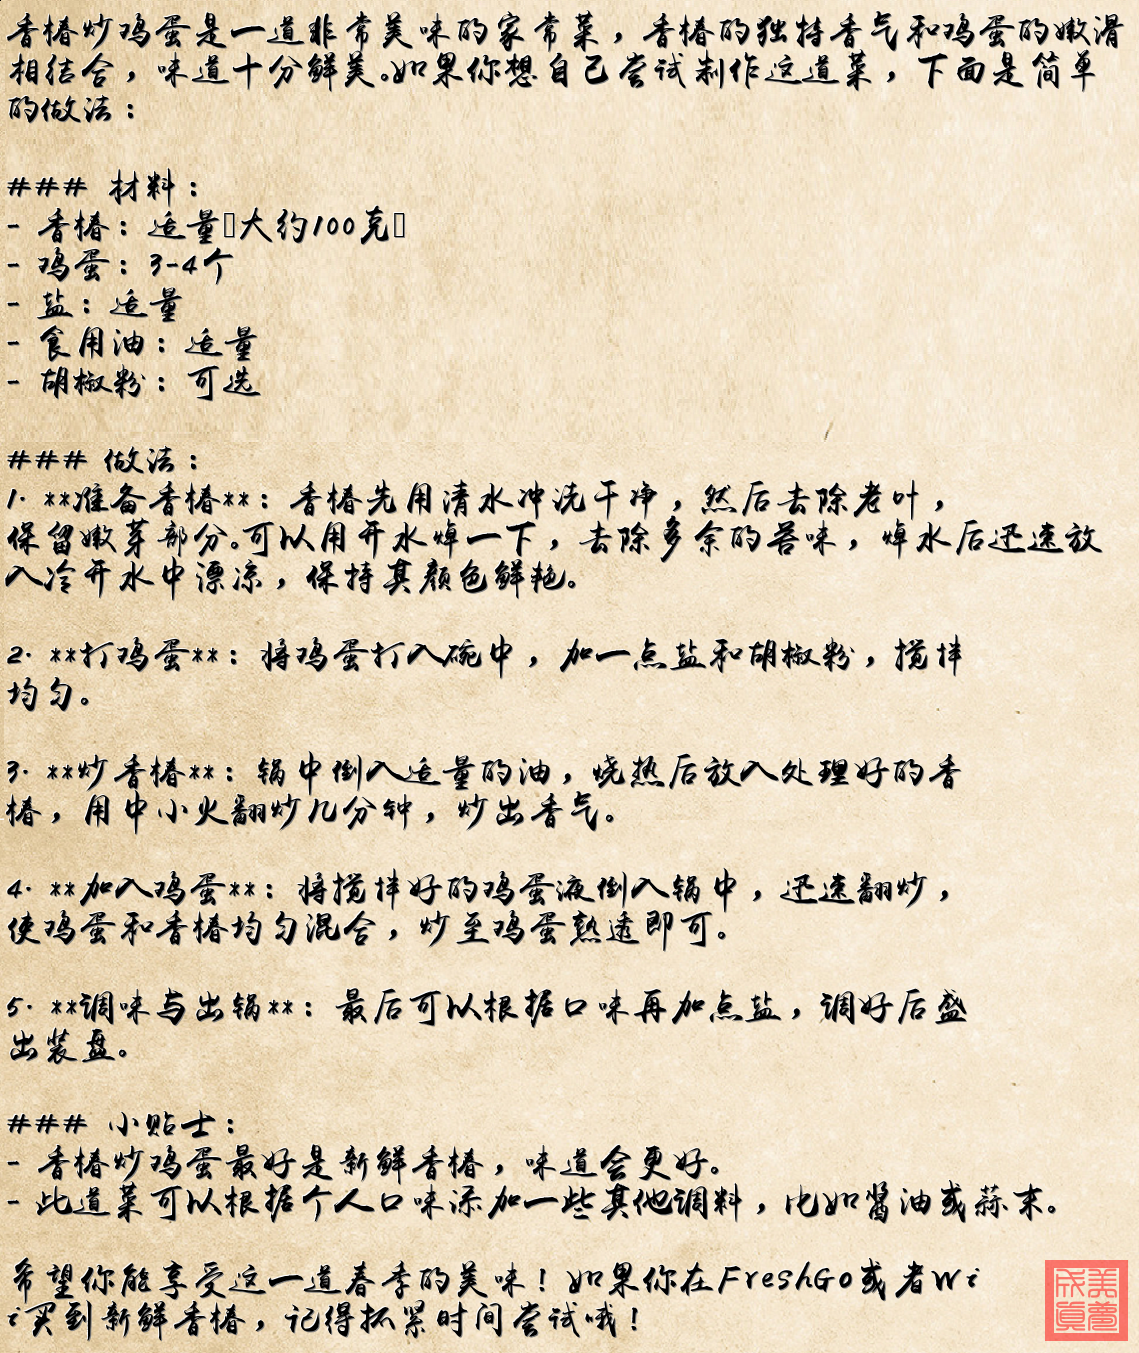 香椿炒鸡蛋是一道非常美味的家常菜，香椿的独特香气和鸡蛋的嫩滑
相结合，味道十分鲜美。如果你想自己尝试制作这道菜，下面是简单
的做法：
### 材料：
- 香椿：适量▯大约100克▯
- 鸡蛋：3-4个
- 盐：适量
- 食用油：适量
- 胡椒粉：可选
### 做法：
1. **准备香椿**：香椿先用清水冲洗干净，然后去除老叶，
保留嫩芽部分。可以用开水焯一下，去除多余的苦味，焯水后迅速放
入冷开水中漂凉，保持其颜色鲜艳。
2. **打鸡蛋**：将鸡蛋打入碗中，加一点盐和胡椒粉，搅拌
均匀。
3. **炒香椿**：锅中倒入适量的油，烧热后放入处理好的香
椿，用中小火翻炒几分钟，炒出香气。
4. **加入鸡蛋**：将搅拌好的鸡蛋液倒入锅中，迅速翻炒，
使鸡蛋和香椿均匀混合，炒至鸡蛋熟透即可。
5. **调味与出锅**：最后可以根据口味再加点盐，调好后盛
出装盘。
### 小贴士：
- 香椿炒鸡蛋最好是新鲜香椿，味道会更好。
- 此道菜可以根据个人口味添加一些其他调料，比如酱油或蒜末。
希望你能享受这一道春季的美味！如果你在FreshGo或者Wi
i买到新鲜香椿，记得抓紧时间尝试哦！
美梦成真